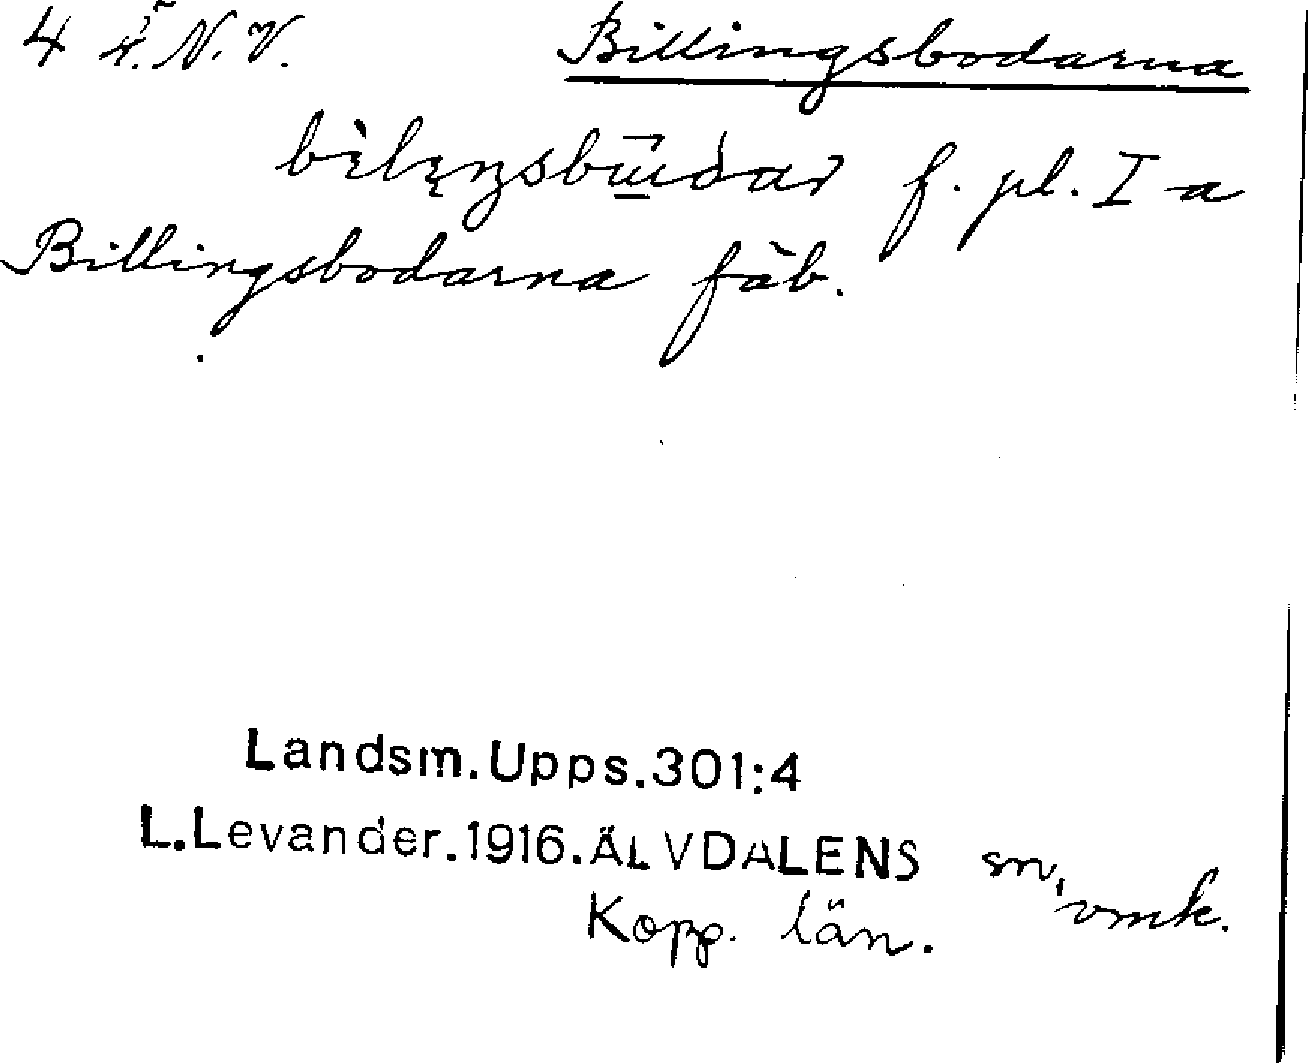 4 N.V. Billingsbodarna
f. pl. I a
Billingsbodarna fäb.
Landsm.Upps.301:4
L.Levander.1916.ÄLVDALENS sn, vmk.
Kopp. län.